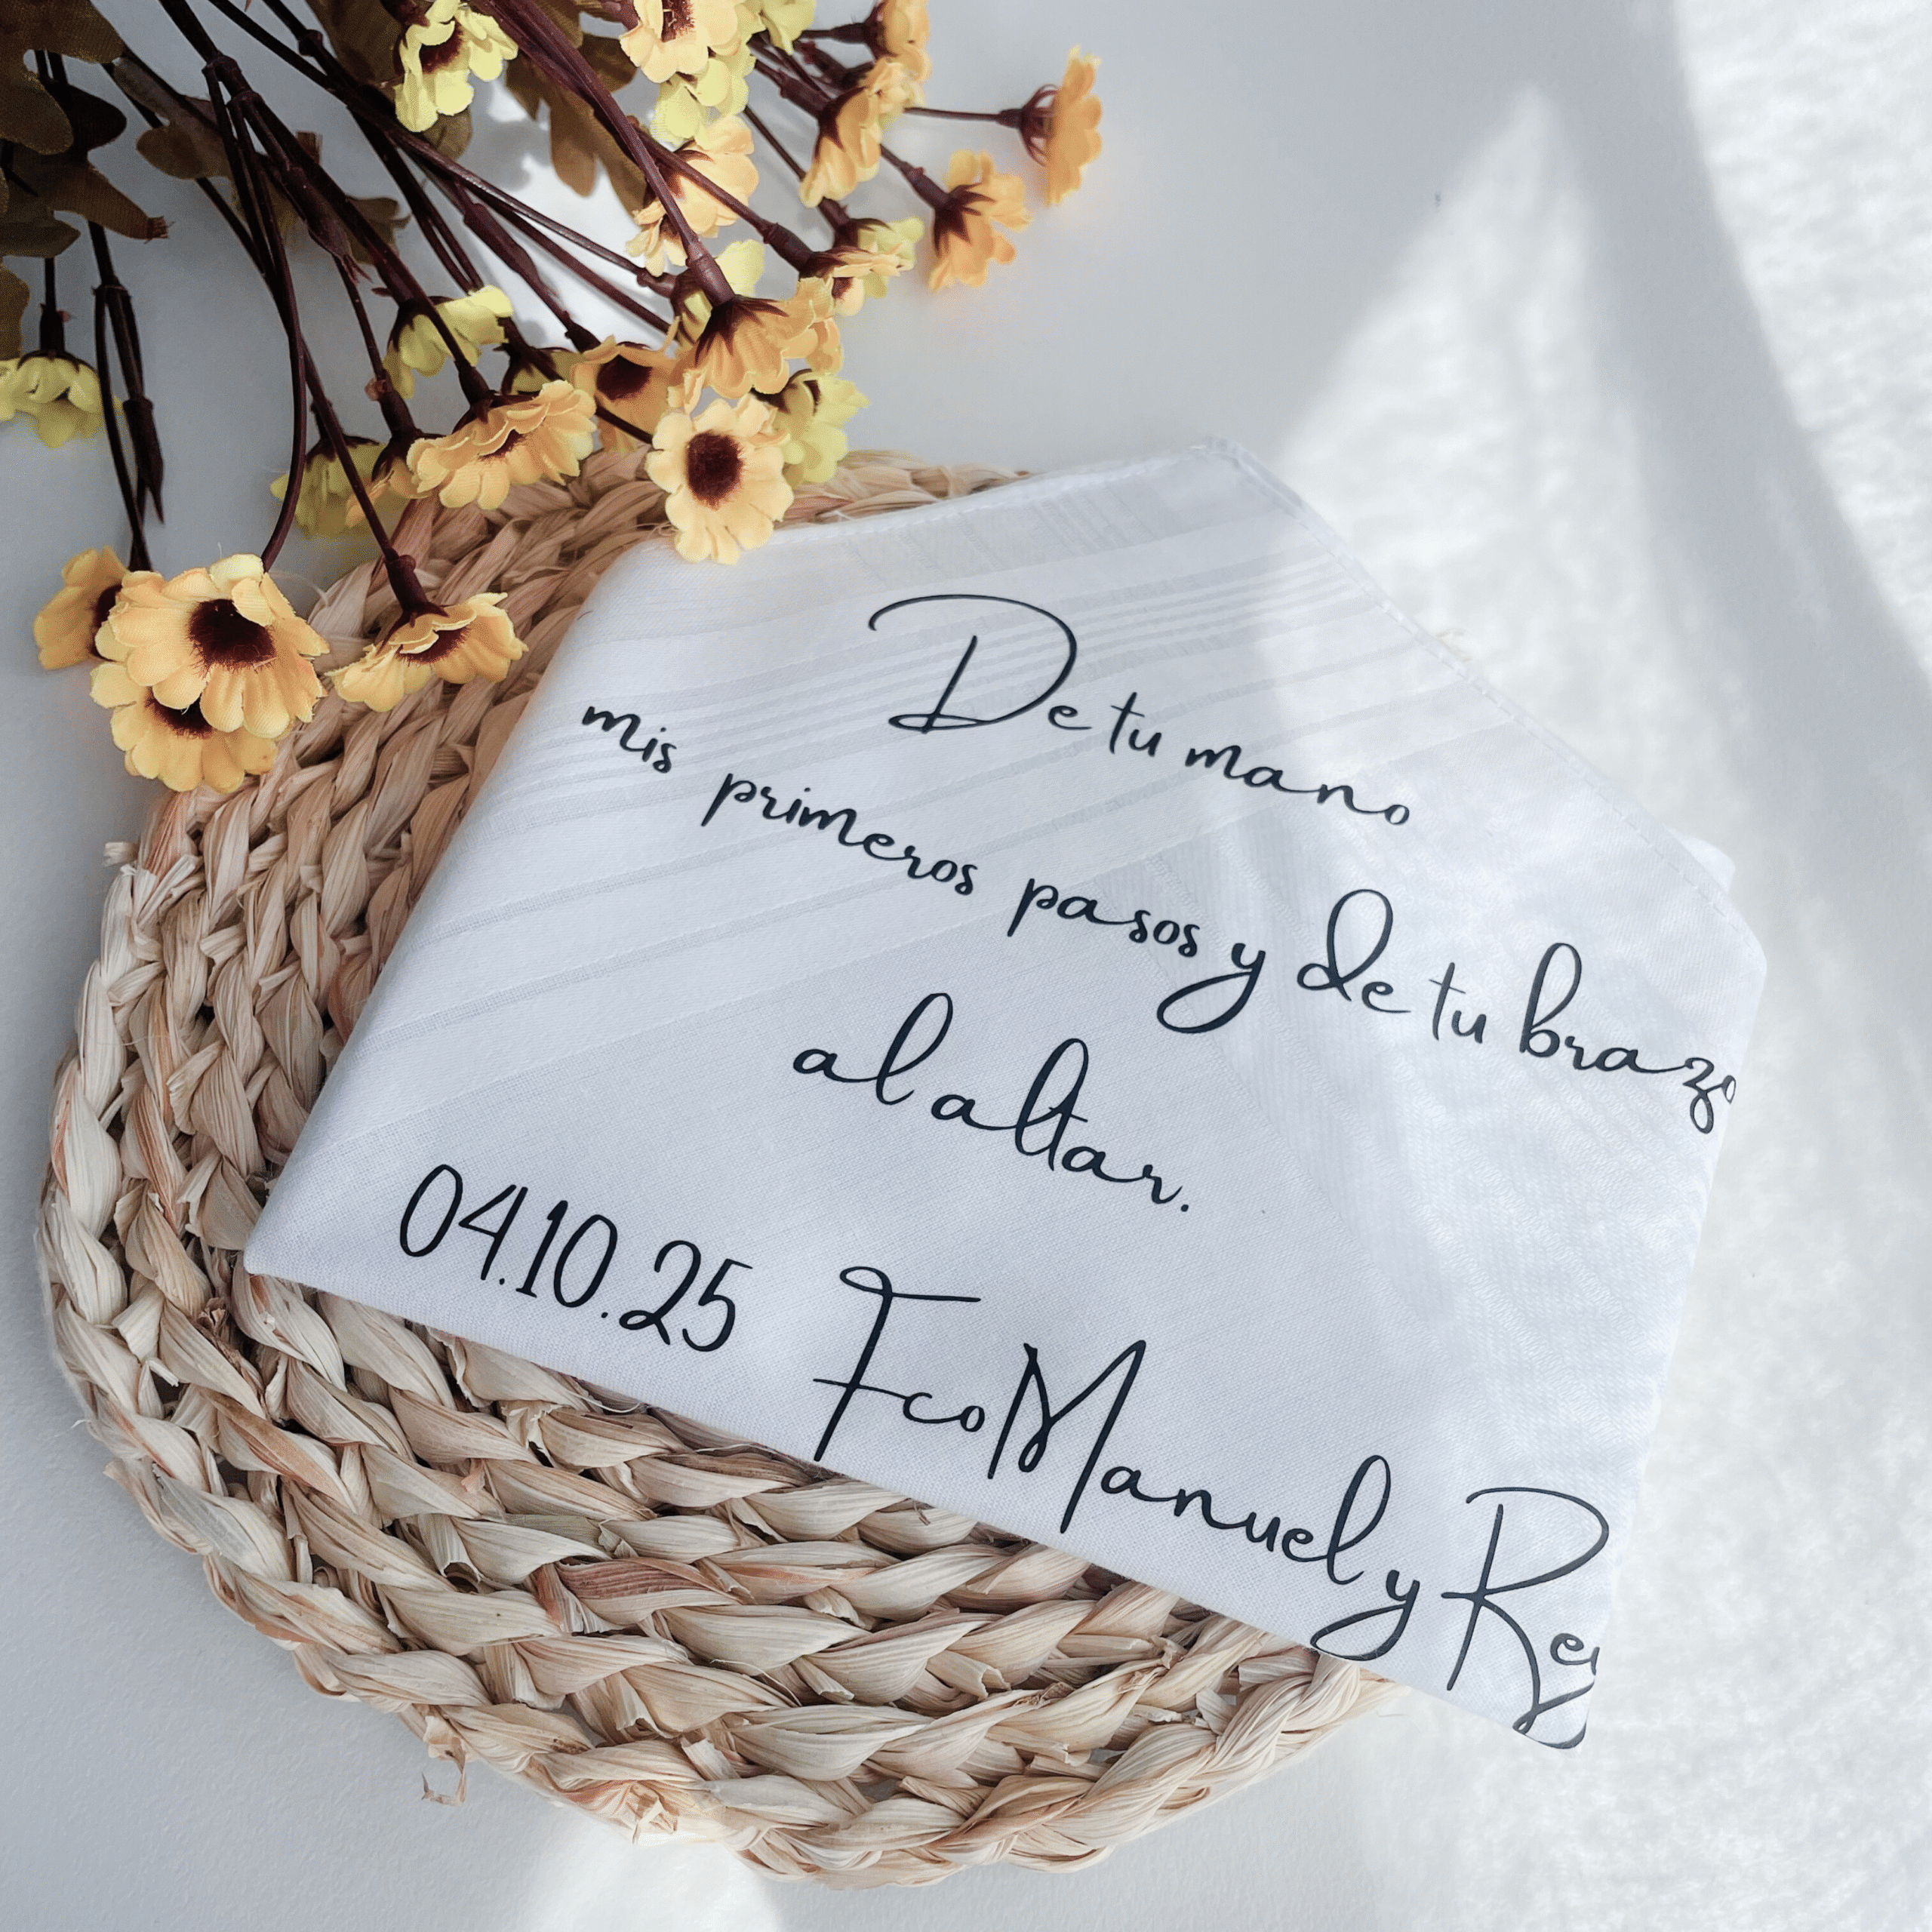 De tu mano
mis primeros pasos y de tu brazo
al altar.
04.10.25 Fco Manuel y